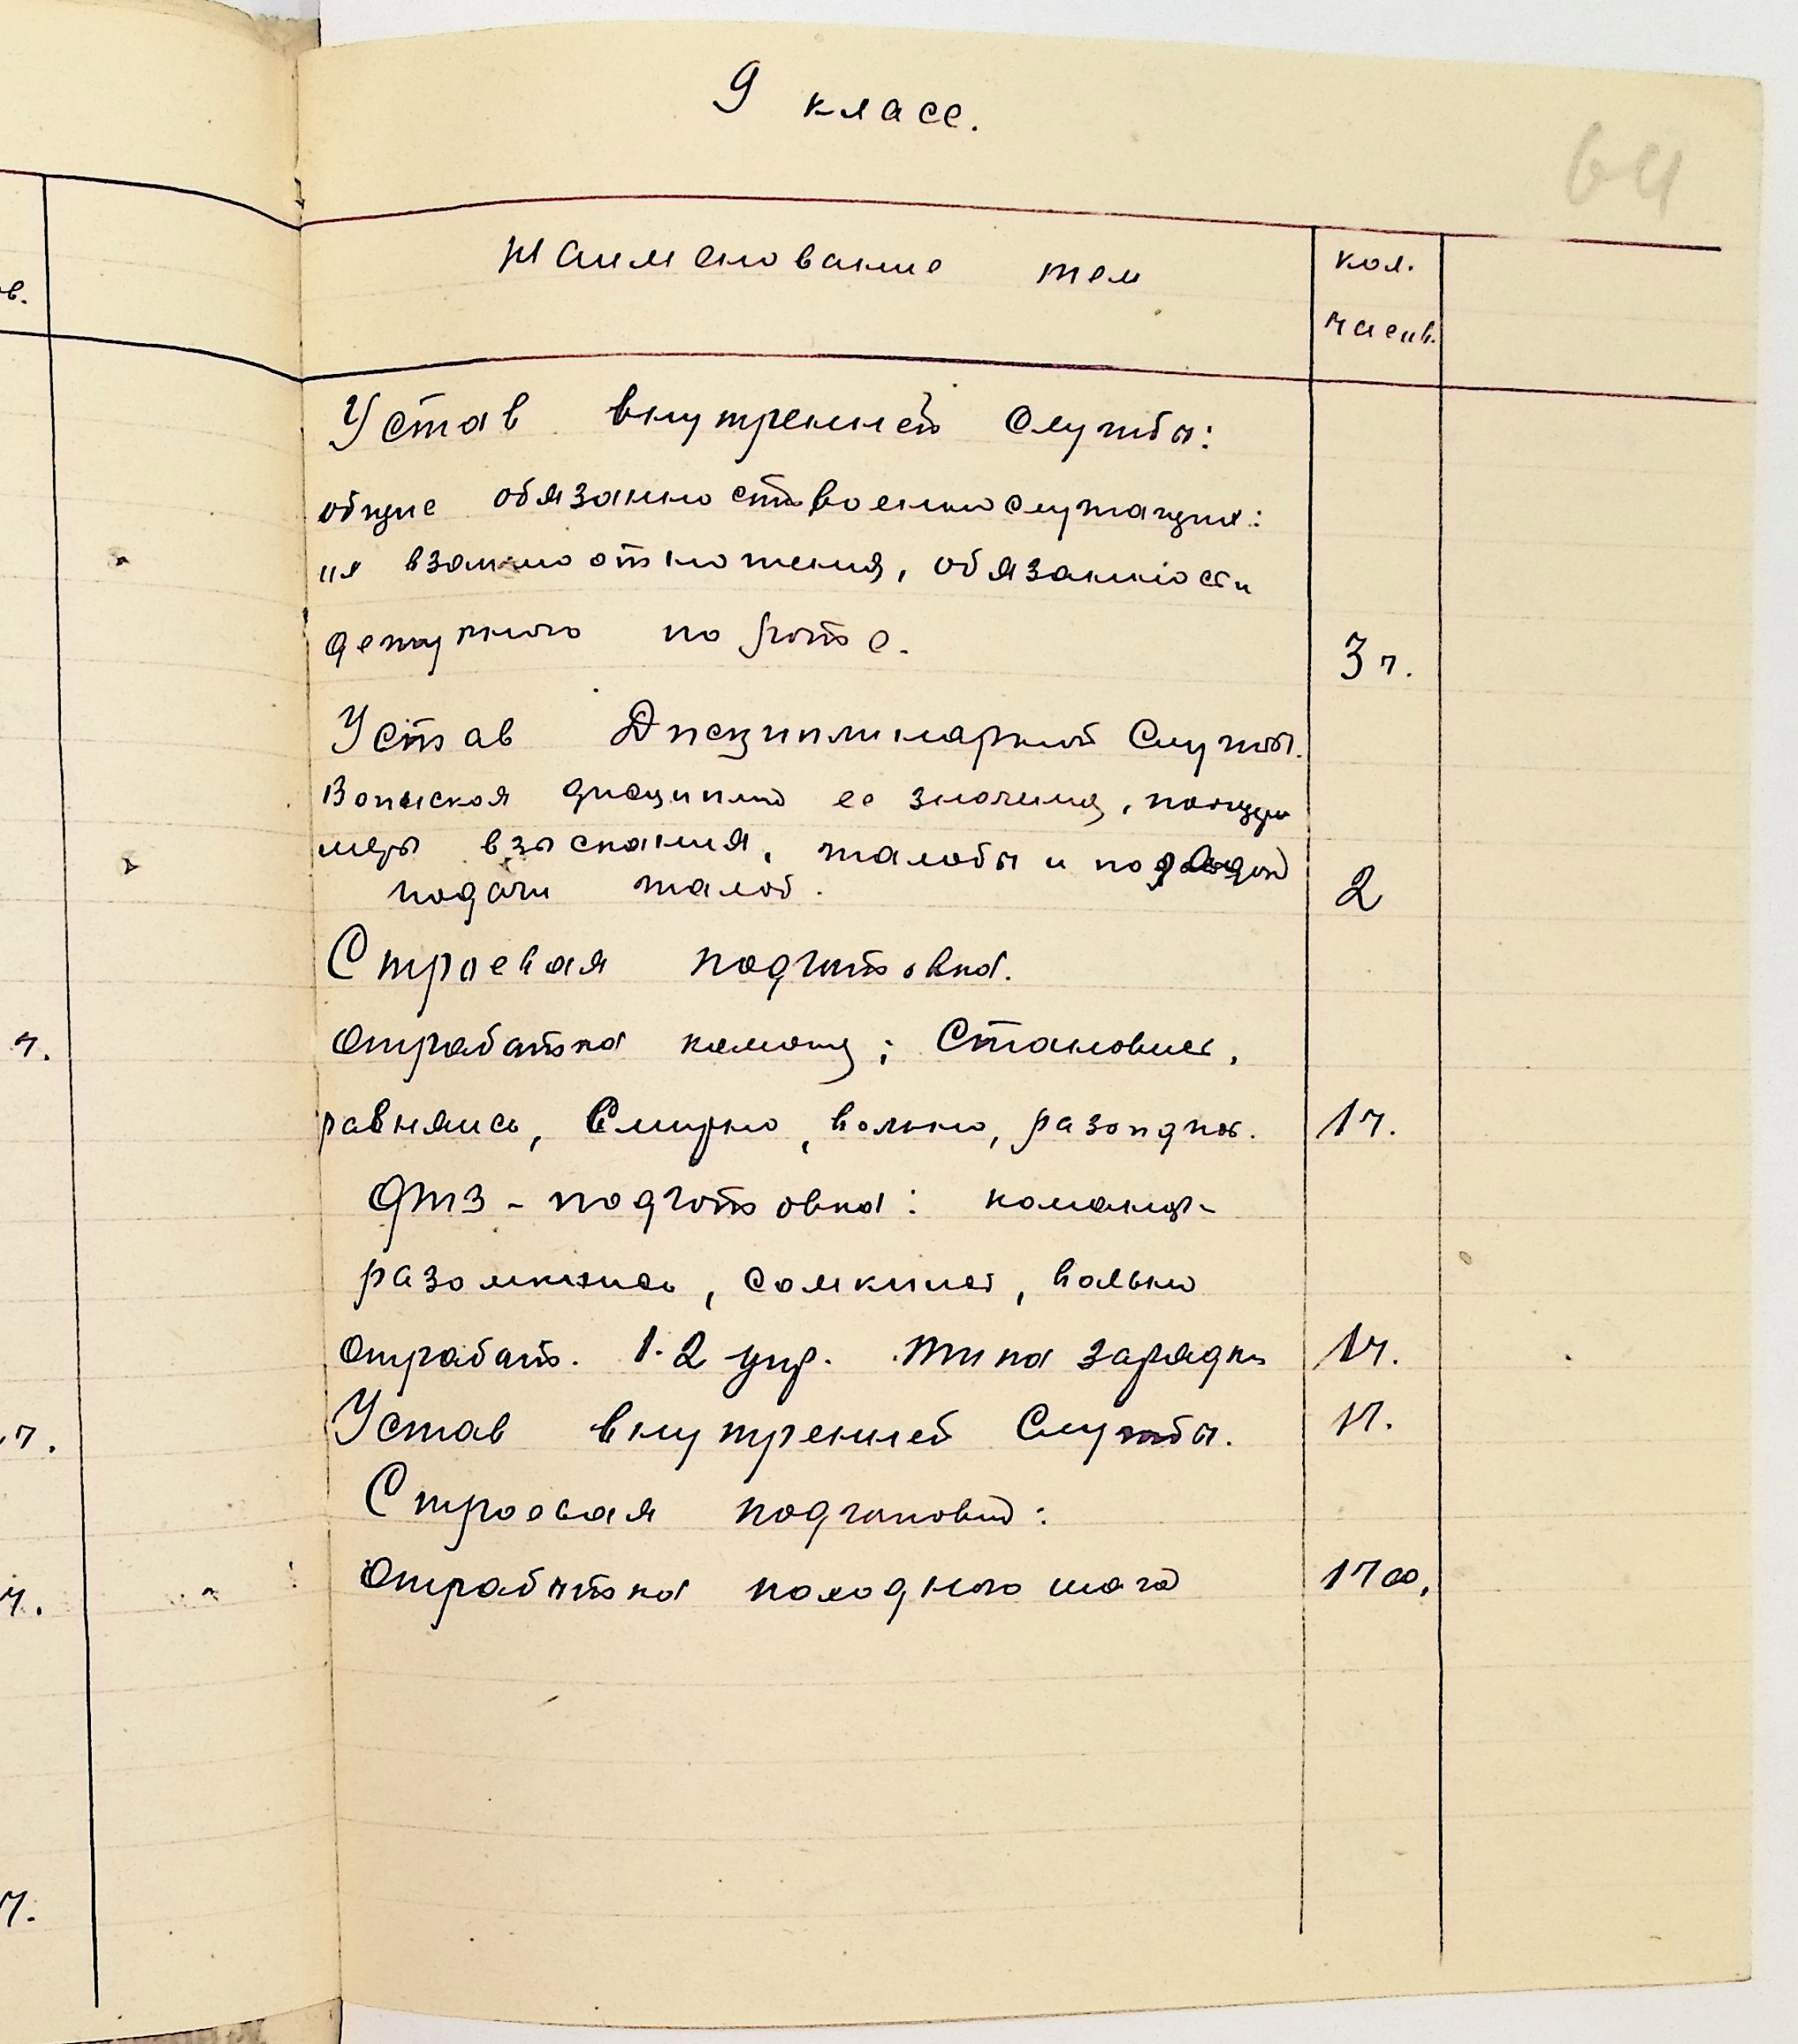 9 класс.
64
Наименование тем
кол.
часов.
Устав внутренней службы:
общие обязанности военнослужащих:
их взаимоотношения, обязанности
дежурного по роте.
3 ч.
Устав Дисциплинарной Службы.
Воинская дисциплина ее значения, поощрен
меры взыскания, жалобы и
подачи жалоб.
2
Строевая подготовка.
Отработка команд; Становись,
равняись, Смирно, вольно, разойдись.
1 ч.
физ-подготовка: команды-
разомкнись, сомкнись, вольно
Отработ. 1-2 упр. типа зарядки
1 ч.
Устав внутренней Службы.
1 ч.
Строевая подготовка:
Отработка походного шага
1 час,
ов.
ч.
ч.
ч.
ч.